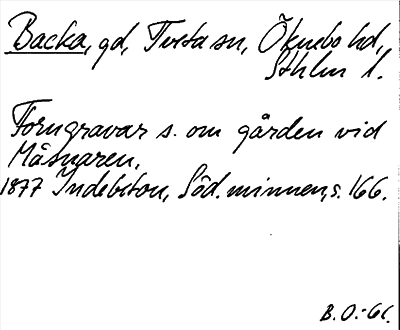 Backa, gd, Tveta sn, Öknebo hd,
Sthlm l.
Forngravar s. om gården vid
Måsnaren.
1877 Indebetou, Söd. minnen, s. 166.
B. O:-61.